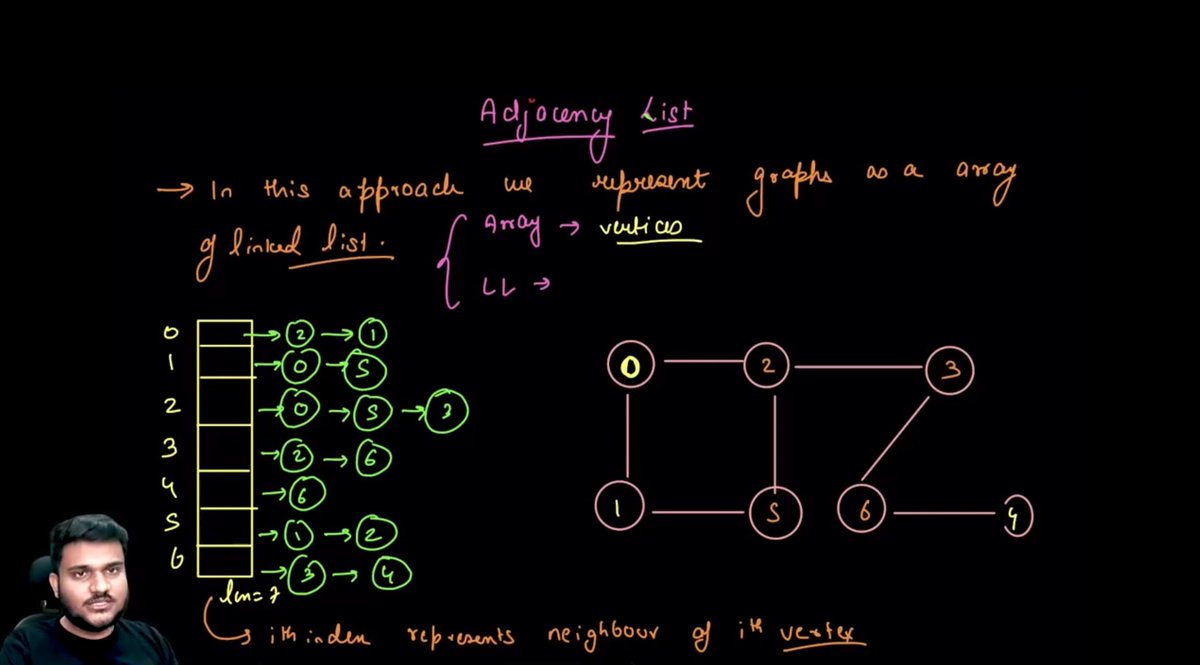 Adjacency List
→ In this approach we represent graphs as a array
of linked list.
Array → vertices
LL →
0 → 2 → 1
1 → 0 → 5
2 → 0 → 5 → 3
3 → 2 → 6
4 → 6
5 → 1 → 2
6 → 3 → 4
len = 7
0 2 3
1 5 6 4
ith index represents neighbour of ith vertex